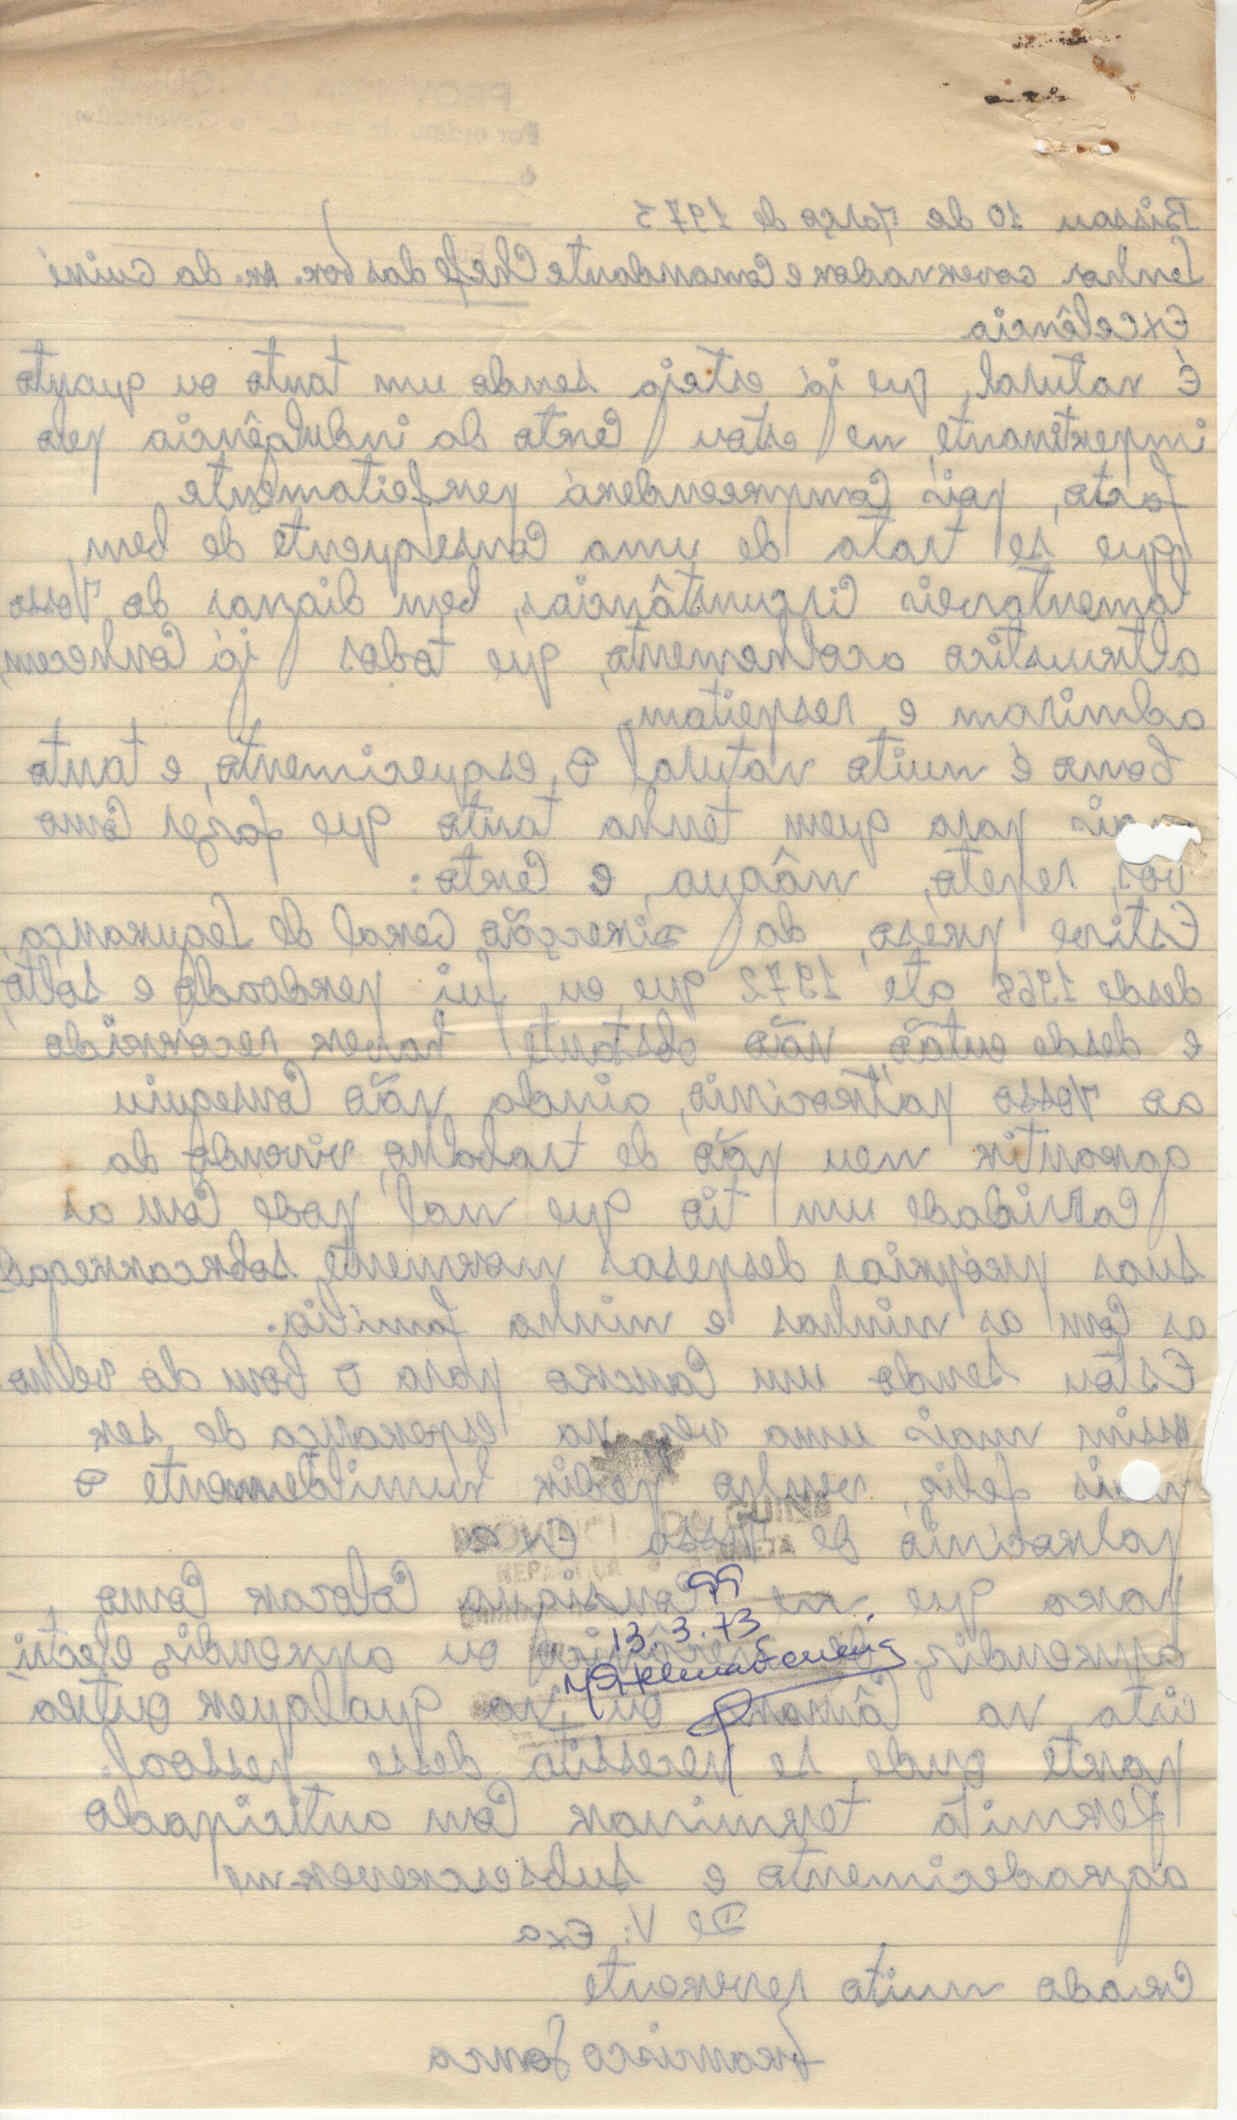 PROVÍNCIA DA GUINÉ
Por ordem de S. Ex.ª o Governador
Bissau 10 de Março de 1973
Senhor Governador e Comandante Chefe das For. Ar. da Guiné
Excelência
É natural, que já esteja sendo um tanto ou quanto
impertinente, me estou certo da indulgência pelo
facto, pois compreenderá perfeitamente
que se trata de uma consequente de bem
lamentáveis circunstâncias, bem dignas do Vosso
altruistico acolhemento, que todos já conhecem,
admiram e respeitam.
Como é muito natural o esquecimento, e tanto
mais para quem tenha tanto que fazer como
vós, repeto, mâgua, e certo:
Estive preso, da Direcção Geral de Segurança,
desde 1968 ate 1972 que eu fui perdoado e solto,
e desde então, não obstante haver recorrido
ao Vosso patrocínio, ainda não conseguiu
garantir meu pão de trabalho, vivendo da
caridade um tio que mal pode com as
suas próprias despesas mormente sobrecarregad
as com as minhas e minha família.
Estou sendo um cancro para o bom do velho
assim mais uma vez na esperança de ser
mais feliz, venho pedir humildemente o
patrocínio de Vossa Exa
para que me consigua colocar como
aprendiz de mecânico, ou aprendiz electri
cista na Câmara ou na qualquer outra
parte onde se necessita desse pessoal.
Permita terminar com anticipado
agradecimento e subsescrever-me
De V: Exa
Criado muito reverente
Francisco Sanca
PROVÍNCIA DA GUINÉ
99
13.3.73